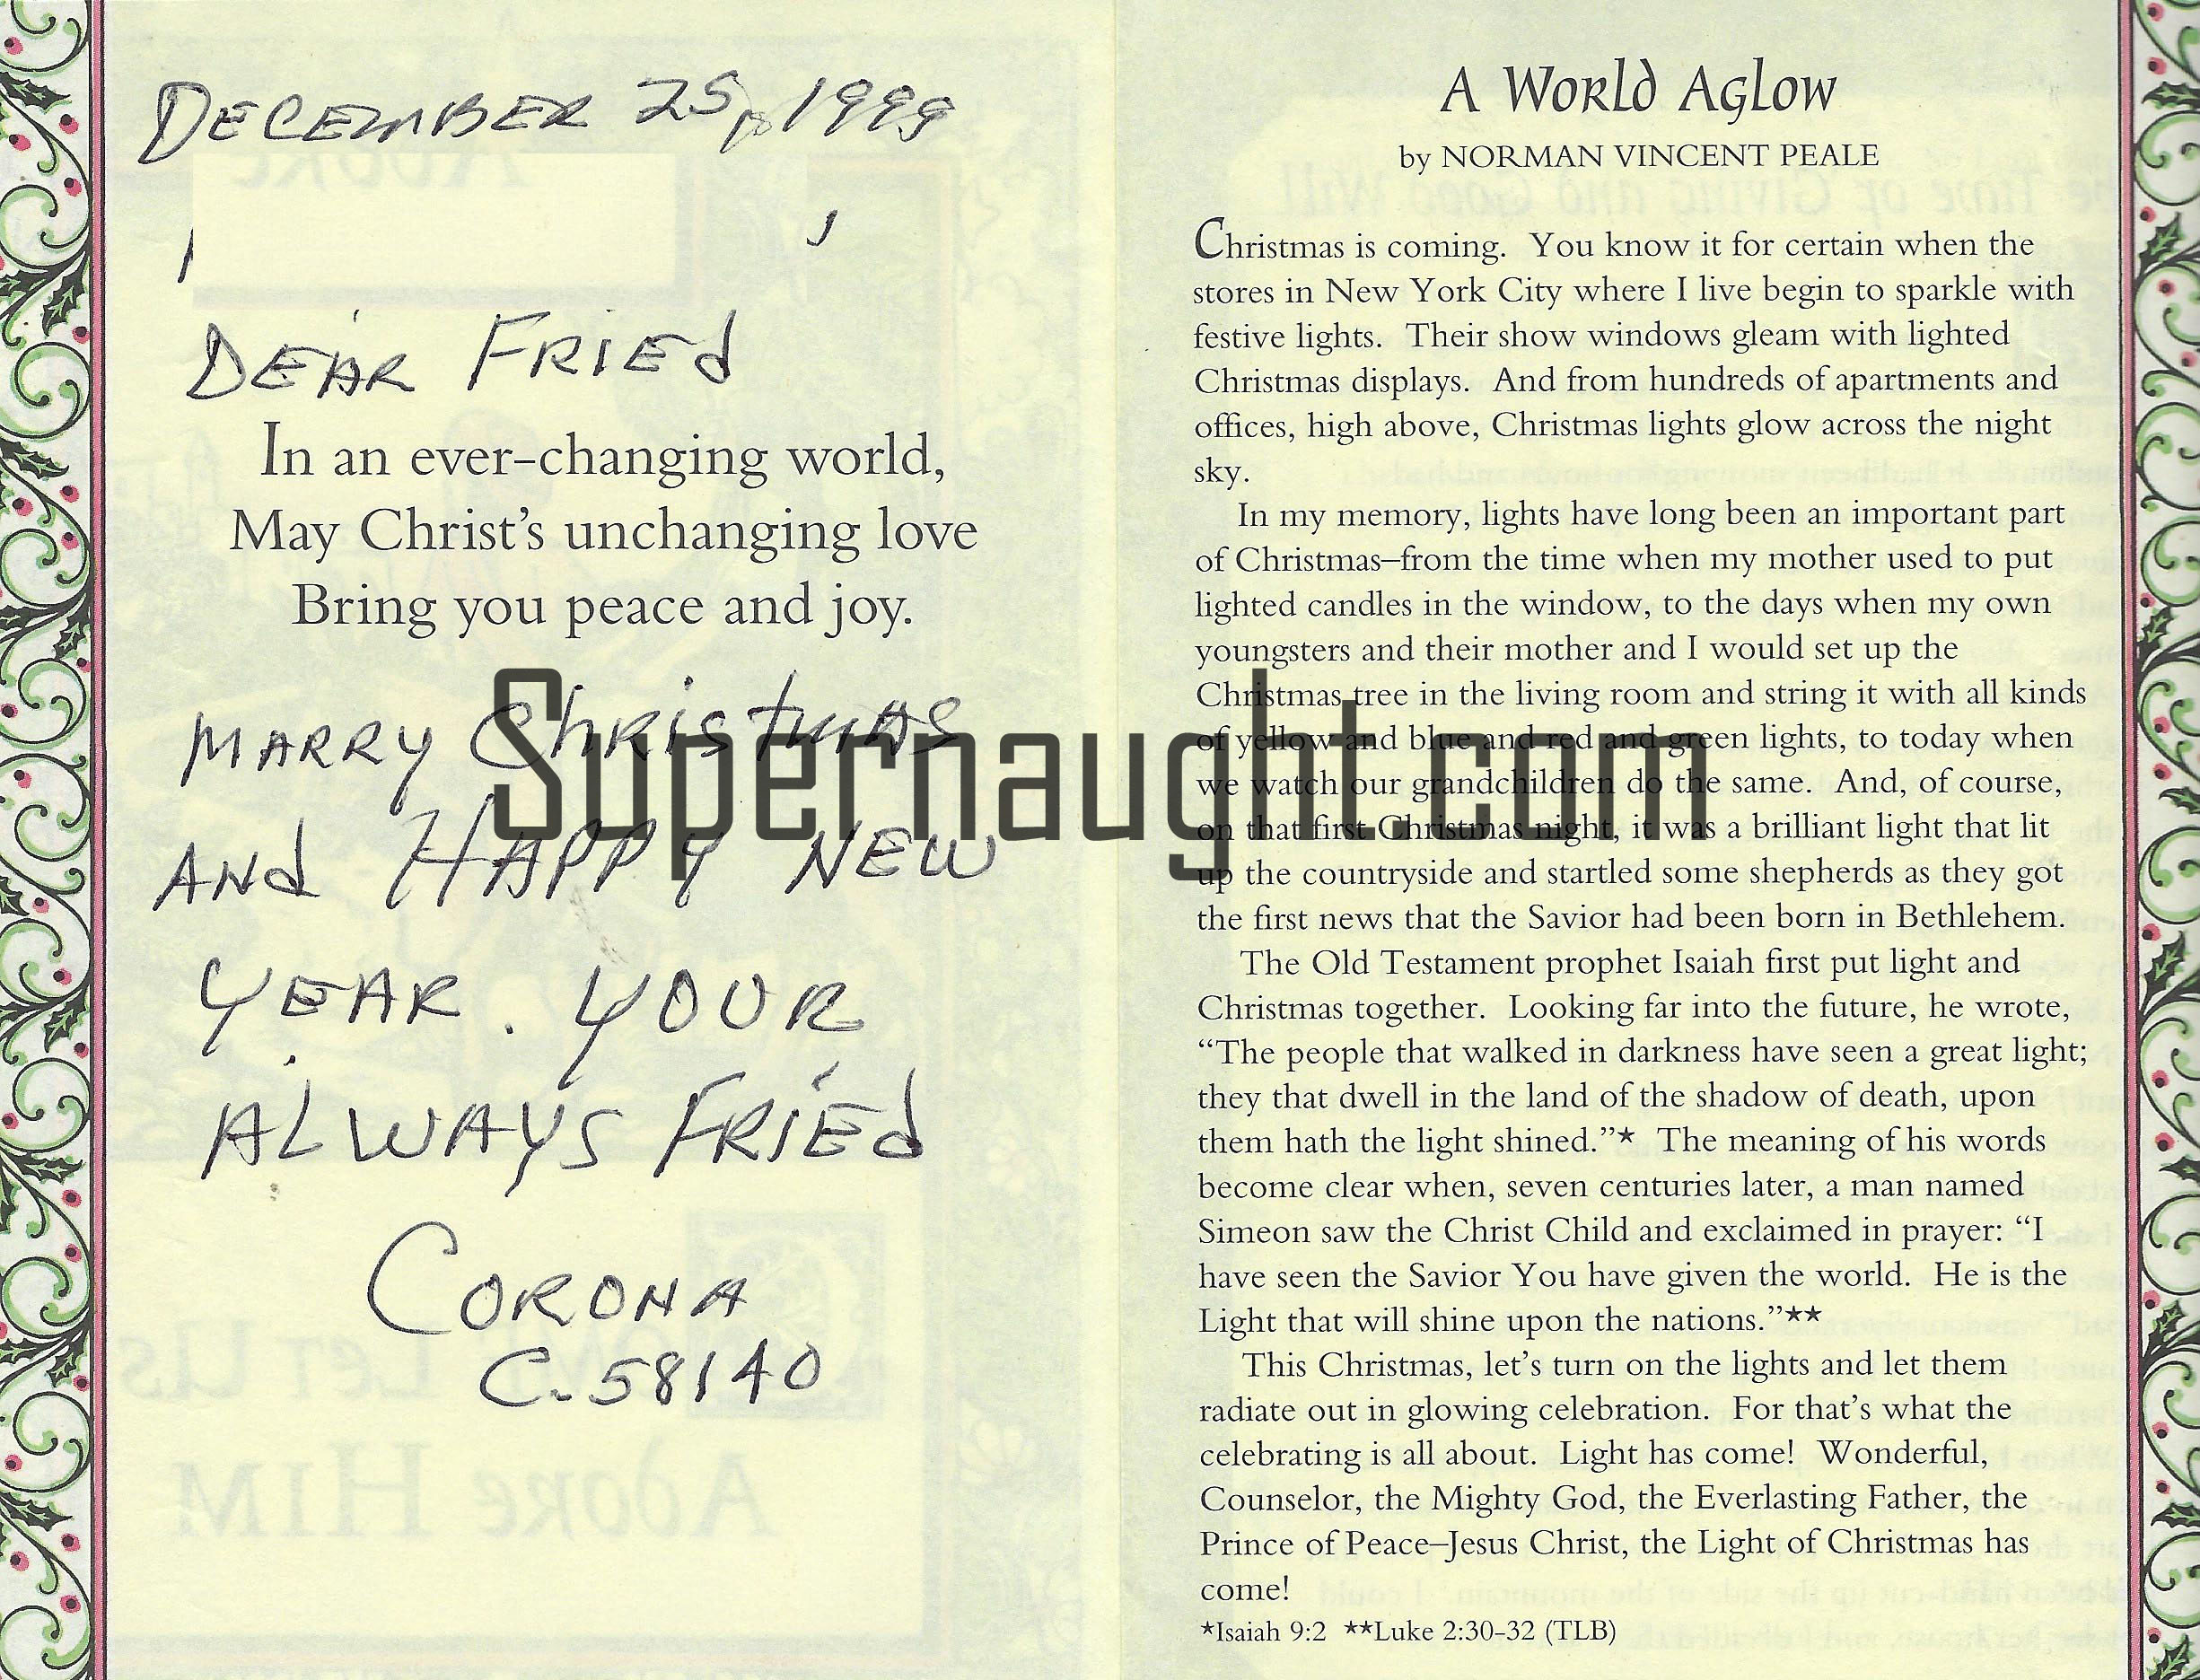 DECEMBER 25, 1999
DEAR FRIEd
In an ever-changing world,
May Christ’s unchanging love
Bring you peace and joy.
MARRY ChRisTMAS
ANd HAPPY NEW
YEAR. YOUR
ALWAYS FRiEd
CORONA
C.58140
A World Aglow
by NORMAN VINCENT PEALE
Christmas is coming. You know it for certain when the
stores in New York City where I live begin to sparkle with
festive lights. Their show windows gleam with lighted
Christmas displays. And from hundreds of apartments and
offices, high above, Christmas lights glow across the night
sky.
In my memory, lights have long been an important part
of Christmas–from the time when my mother used to put
lighted candles in the window, to the days when my own
youngsters and their mother and I would set up the
Christmas tree in the living room and string it with all kinds
of yellow and blue and red and green lights, to today when
we watch our grandchildren do the same. And, of course,
on that first Christmas night, it was a brilliant light that lit
up the countryside and startled some shepherds as they got
the first news that the Savior had been born in Bethlehem.
The Old Testament prophet Isaiah first put light and
Christmas together. Looking far into the future, he wrote,
“The people that walked in darkness have seen a great light;
they that dwell in the land of the shadow of death, upon
them hath the light shined.”* The meaning of his words
become clear when, seven centuries later, a man named
Simeon saw the Christ Child and exclaimed in prayer: “I
have seen the Savior You have given the world. He is the
Light that will shine upon the nations.”**
This Christmas, let’s turn on the lights and let them
radiate out in glowing celebration. For that’s what the
celebrating is all about. Light has come! Wonderful,
Counselor, the Mighty God, the Everlasting Father, the
Prince of Peace–Jesus Christ, the Light of Christmas has
come!
*Isaiah 9:2 **Luke 2:30-32 (TLB)
Supernaught.com